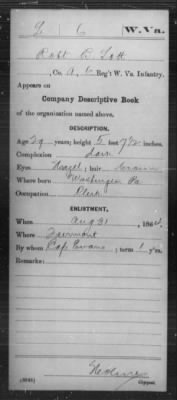 L 6 W. Va.
Robt B. Lott
, Co. A, 6 Reg't W. Va. Infantry.
Appears on
Company Descriptive Book
of the organization named above.
DESCRIPTION.
Age 29 years; height 5 feet 7½ inches.
Complexion Fair
Eyes Hazel; hair Brown
Where born Washington Pa
Occupation Clerk
ENLISTMENT.
When Aug 31, 1864.
Where Fairmont
By whom Cap; term 1 y'rs.
Remarks:
Copyist.